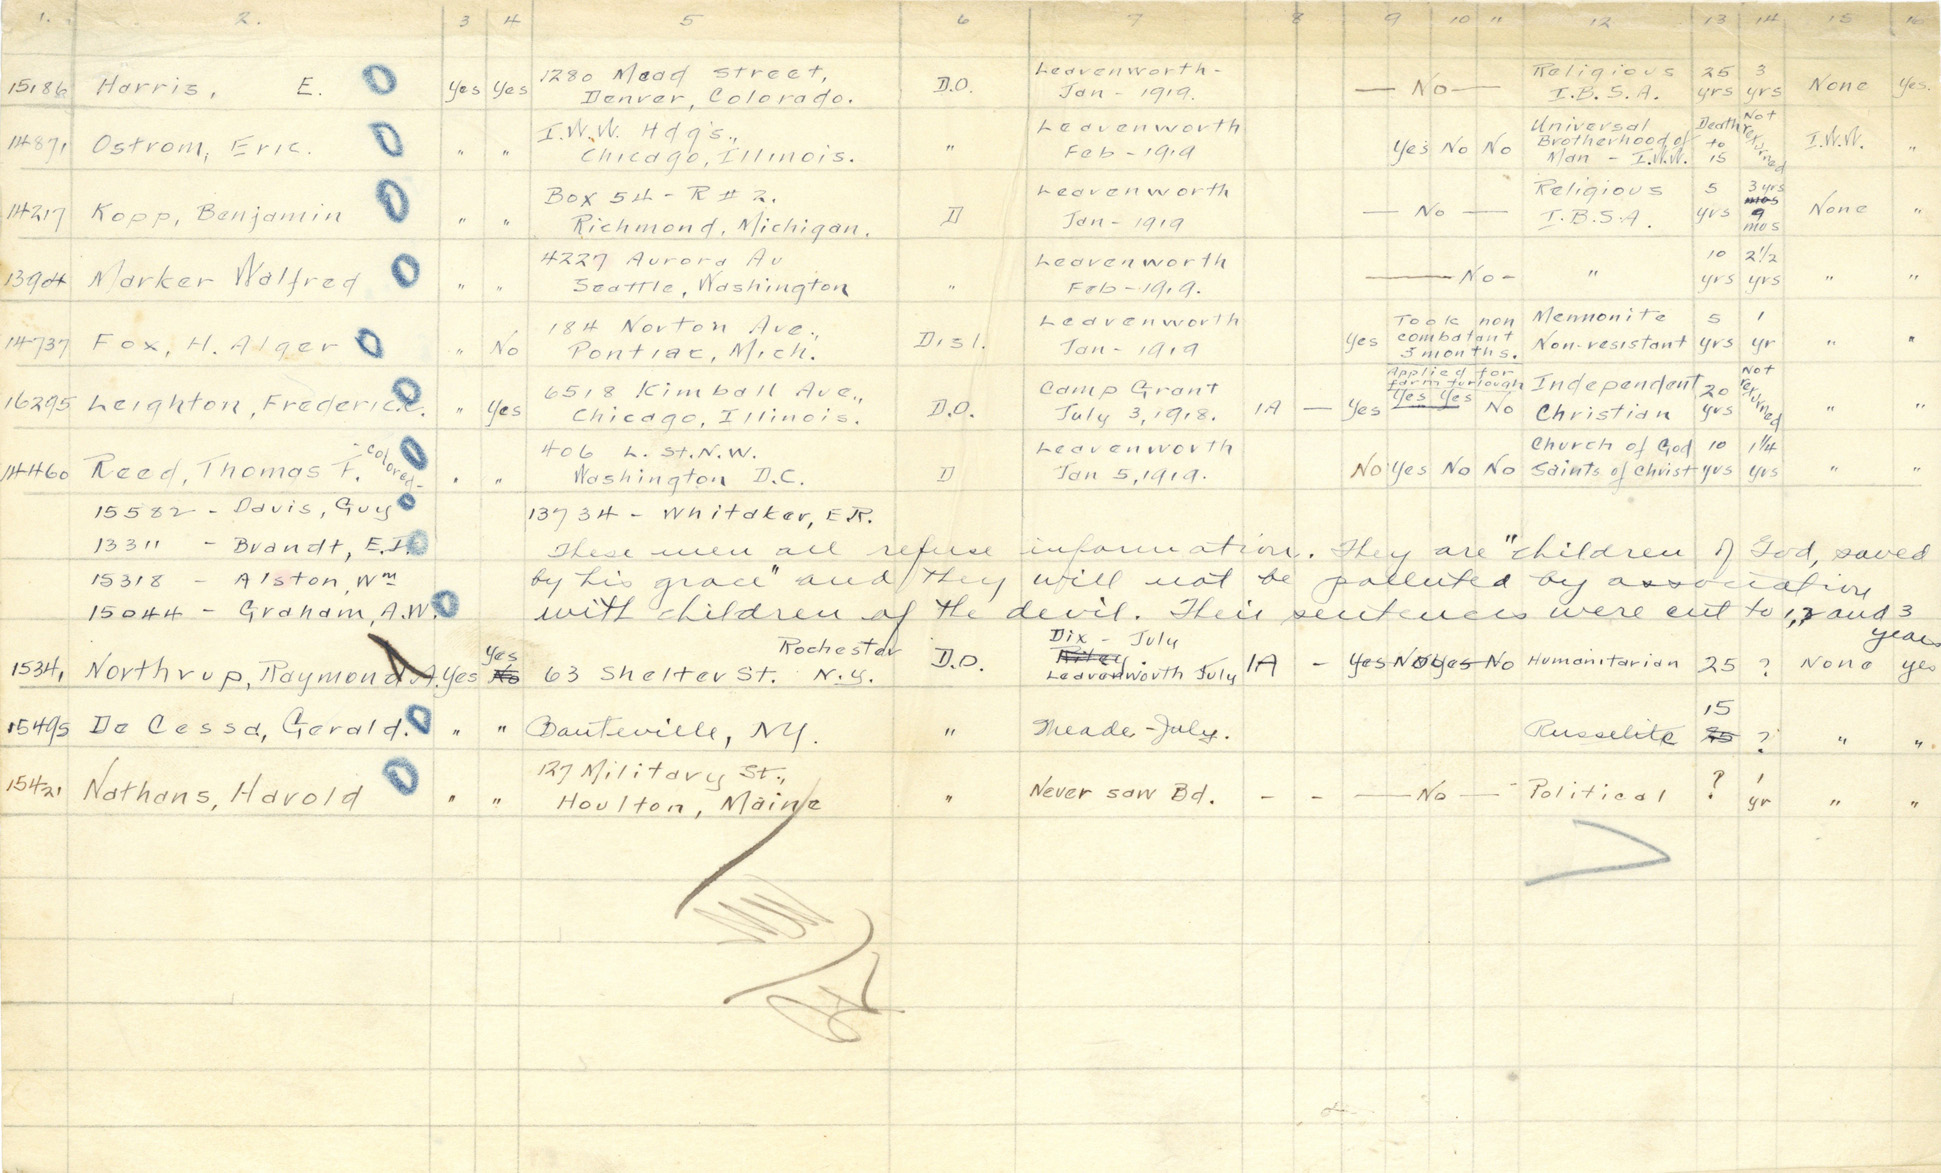 1. 2. 3 4 5 6 7 8 9 10 " 12 13 14 15 16
15186 Harris, E. Yes Yes 1280 Mead Street, Denver, Colorado. D.O. Leavenworth - Jan - 1919. — No — Religious I.B.S.A. 25 yrs 3 yrs None Yes.
14871 Ostrom, Eric. " " I.W.W. Hdq's., Chicago, Illinois. " Leavenworth Feb - 1919 Yes No No Universal Brotherhood of Man - I.W.W. Death to 15 Not returned I.W.W. "
14217 Kopp, Benjamin " " Box 54 - R # 2. Richmond, Michigan. D Leavenworth Jan - 1919 — No — Religious I.B.S.A. 5 yrs 3 yrs mos 9 mos None "
13904 Marker Walfred " " 4227 Aurora Av Seattle, Washington " Leavenworth Feb - 1919. — No - " 10 yrs 2 1/2 yrs " "
14737 Fox, H. Alger " No 184 Norton Ave., Pontiac, Mich. Disl. Leavenworth Jan - 1919 Yes Took non combatant 3 months. Mennonite Non-resistant 5 yrs 1 yr " "
16295 Leighton, Frederic. " Yes 6518 Kimball Ave., Chicago, Illinois. D.O. Camp Grant July 3, 1918. 1A — Yes Applied for farm furlough Yes Yes No Independent Christian 20 yrs Not returned " "
14460 Reed, Thomas F. - colored - " " 406 L. St. N.W. Washington D.C. D Leavenworth Jan 5, 1919. No Yes No No Church of God Saints of Christ 10 yrs 1 1/4 yrs " "
15582 - Davis, Guy 13734 - Whitaker, E.R.
13311 - Brandt, E.J. These men all refuse information. They are "children of God, saved
15318 - Alston, Wm by his grace" and they will not be polluted by association
15044 - Graham, A.W. with children of the devil. Their sentences were cut to 1, 2 and 3 years
1534, Northrup, Raymond A. Yes Yes No 63 Shelter St. Rochester N.Y. D.O. Dix - July Riley. Leavenworth July 1A - Yes No Yes No Humanitarian 25 ? None yes
15495 De Cessa, Gerald. " " Bauteville, NY. " Meade - July. Russelite 15 25 ? " "
15421 Nathans, Harold " " 127 Military St., Houlton, Maine " Never saw Bd. - - — No — Political ? 1 yr " "